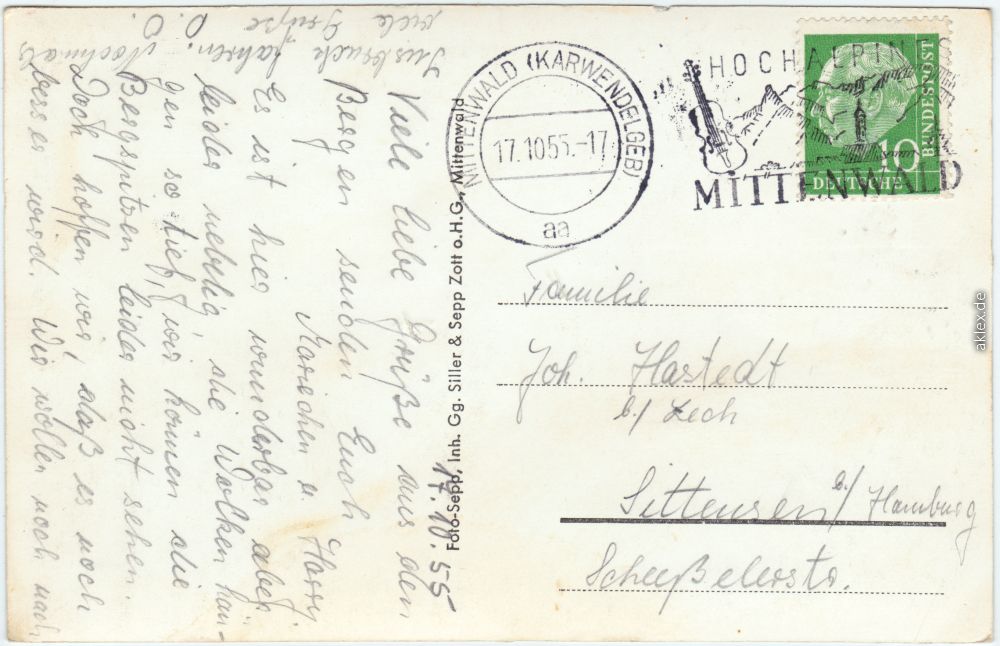 17.10.55
Viele liebe Grüße aus den
Bergen senden Euch
Mariechen u. Harri.
Es ist hier wunderbar aber
leider neblig, die Wolken hän-
gen so tief, wir können die
Bergspitzen leider nicht sehen.
Doch hoffen wir, daß es noch
besser wird. Wir wollen noch nach
Insbruck fahren. Nochmals
viele Grüße
D. O.
Foto-Sepp, Inh. Gg. Siller & Sepp Zott o.H.G., Mittenwald
MITTENWALD (KARWENDELGEB)
17.10.55.-17
aa
HOCHALPINES
MITTENWALD
10
DEUTSCHE
BUNDESPOST
Familie
Joh. Hastedt
b/ Zech
Sittensen b/ Hamburg
Scheeßelerstr.
aklex.de